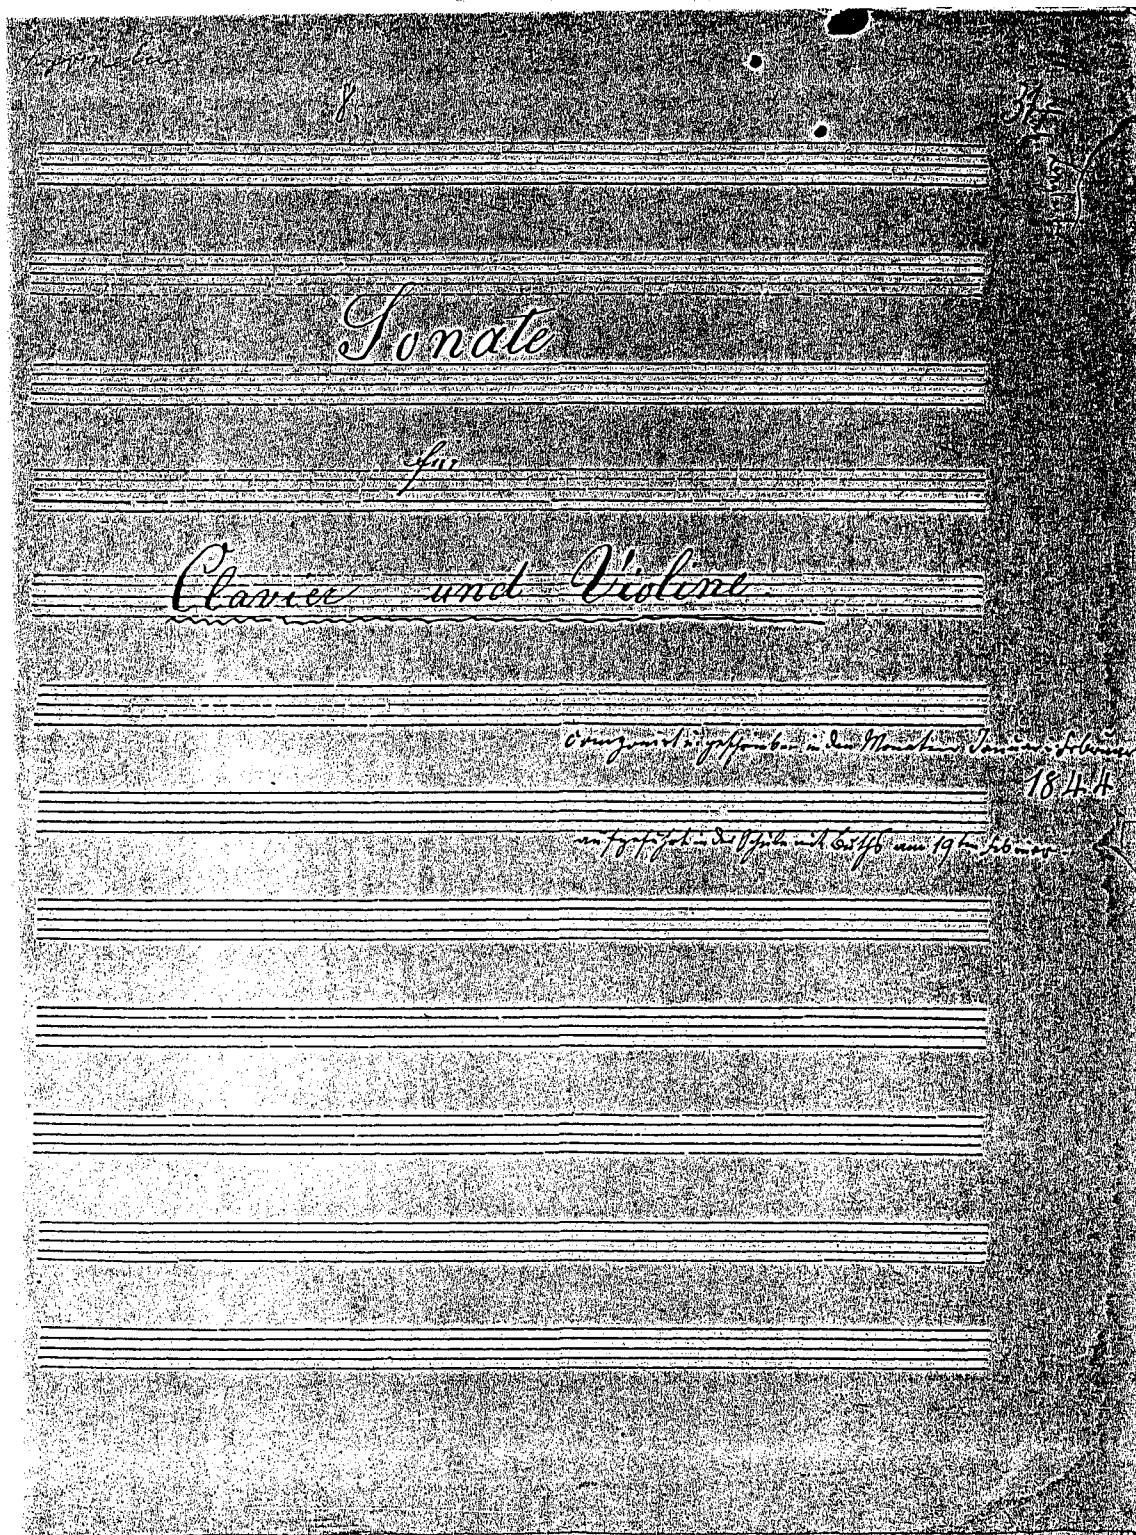 8.
37
Sonate
für
Clavier und Violine.
componirt u geschrieben in den Monaten Januar u Februar
1844
aufgeführt in der Schule mit am 19ten Februar.